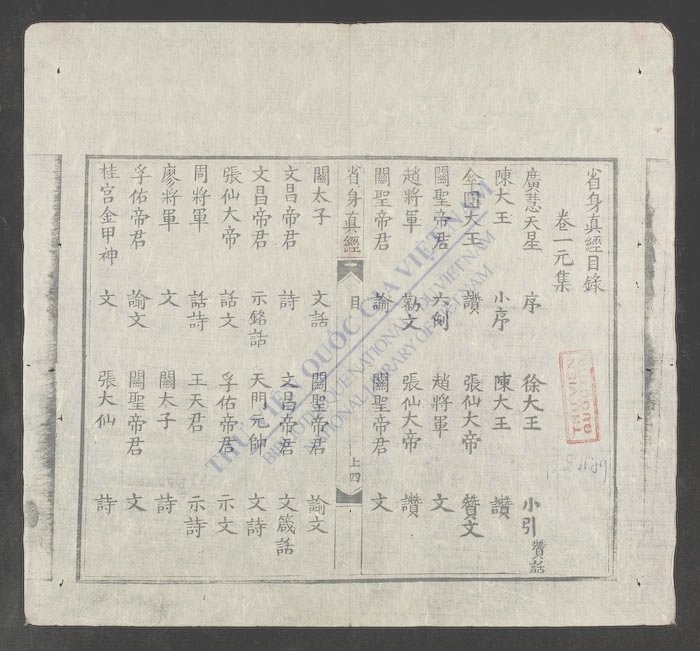 省身真經目錄
卷一元集
廣慧天星 序 徐大王 小引 贊話
陳大王 小序 陳大王 讚
傘圓大王 讚 張仙大帝 贊文
關聖帝君 六例 趙將軍 文
趙將軍 勸文 張仙大帝 讚
關聖帝君 諭 關聖帝君 文
省身真經 目 上四
關太子 文話 關聖帝君 諭文
文昌帝君 詩 文昌帝君 文箴話
文昌帝君 示銘話 天門元帥 文詩
張仙大帝 話文 孚佑帝君 示文
周將軍 話詩 王天君 示詩
廖將軍 文 關太子 詩
孚佑帝君 諭文 關聖帝君 文
桂宮金甲神 文 張大仙 詩
THƯ VIỆN QUỐC GIA VIỆT NAM
BIBLIOTHÈQUE NATIONALE DU VIETNAM
NATIONAL LIBRARY OF VIETNAM
THU VIEN
QUOC GIA